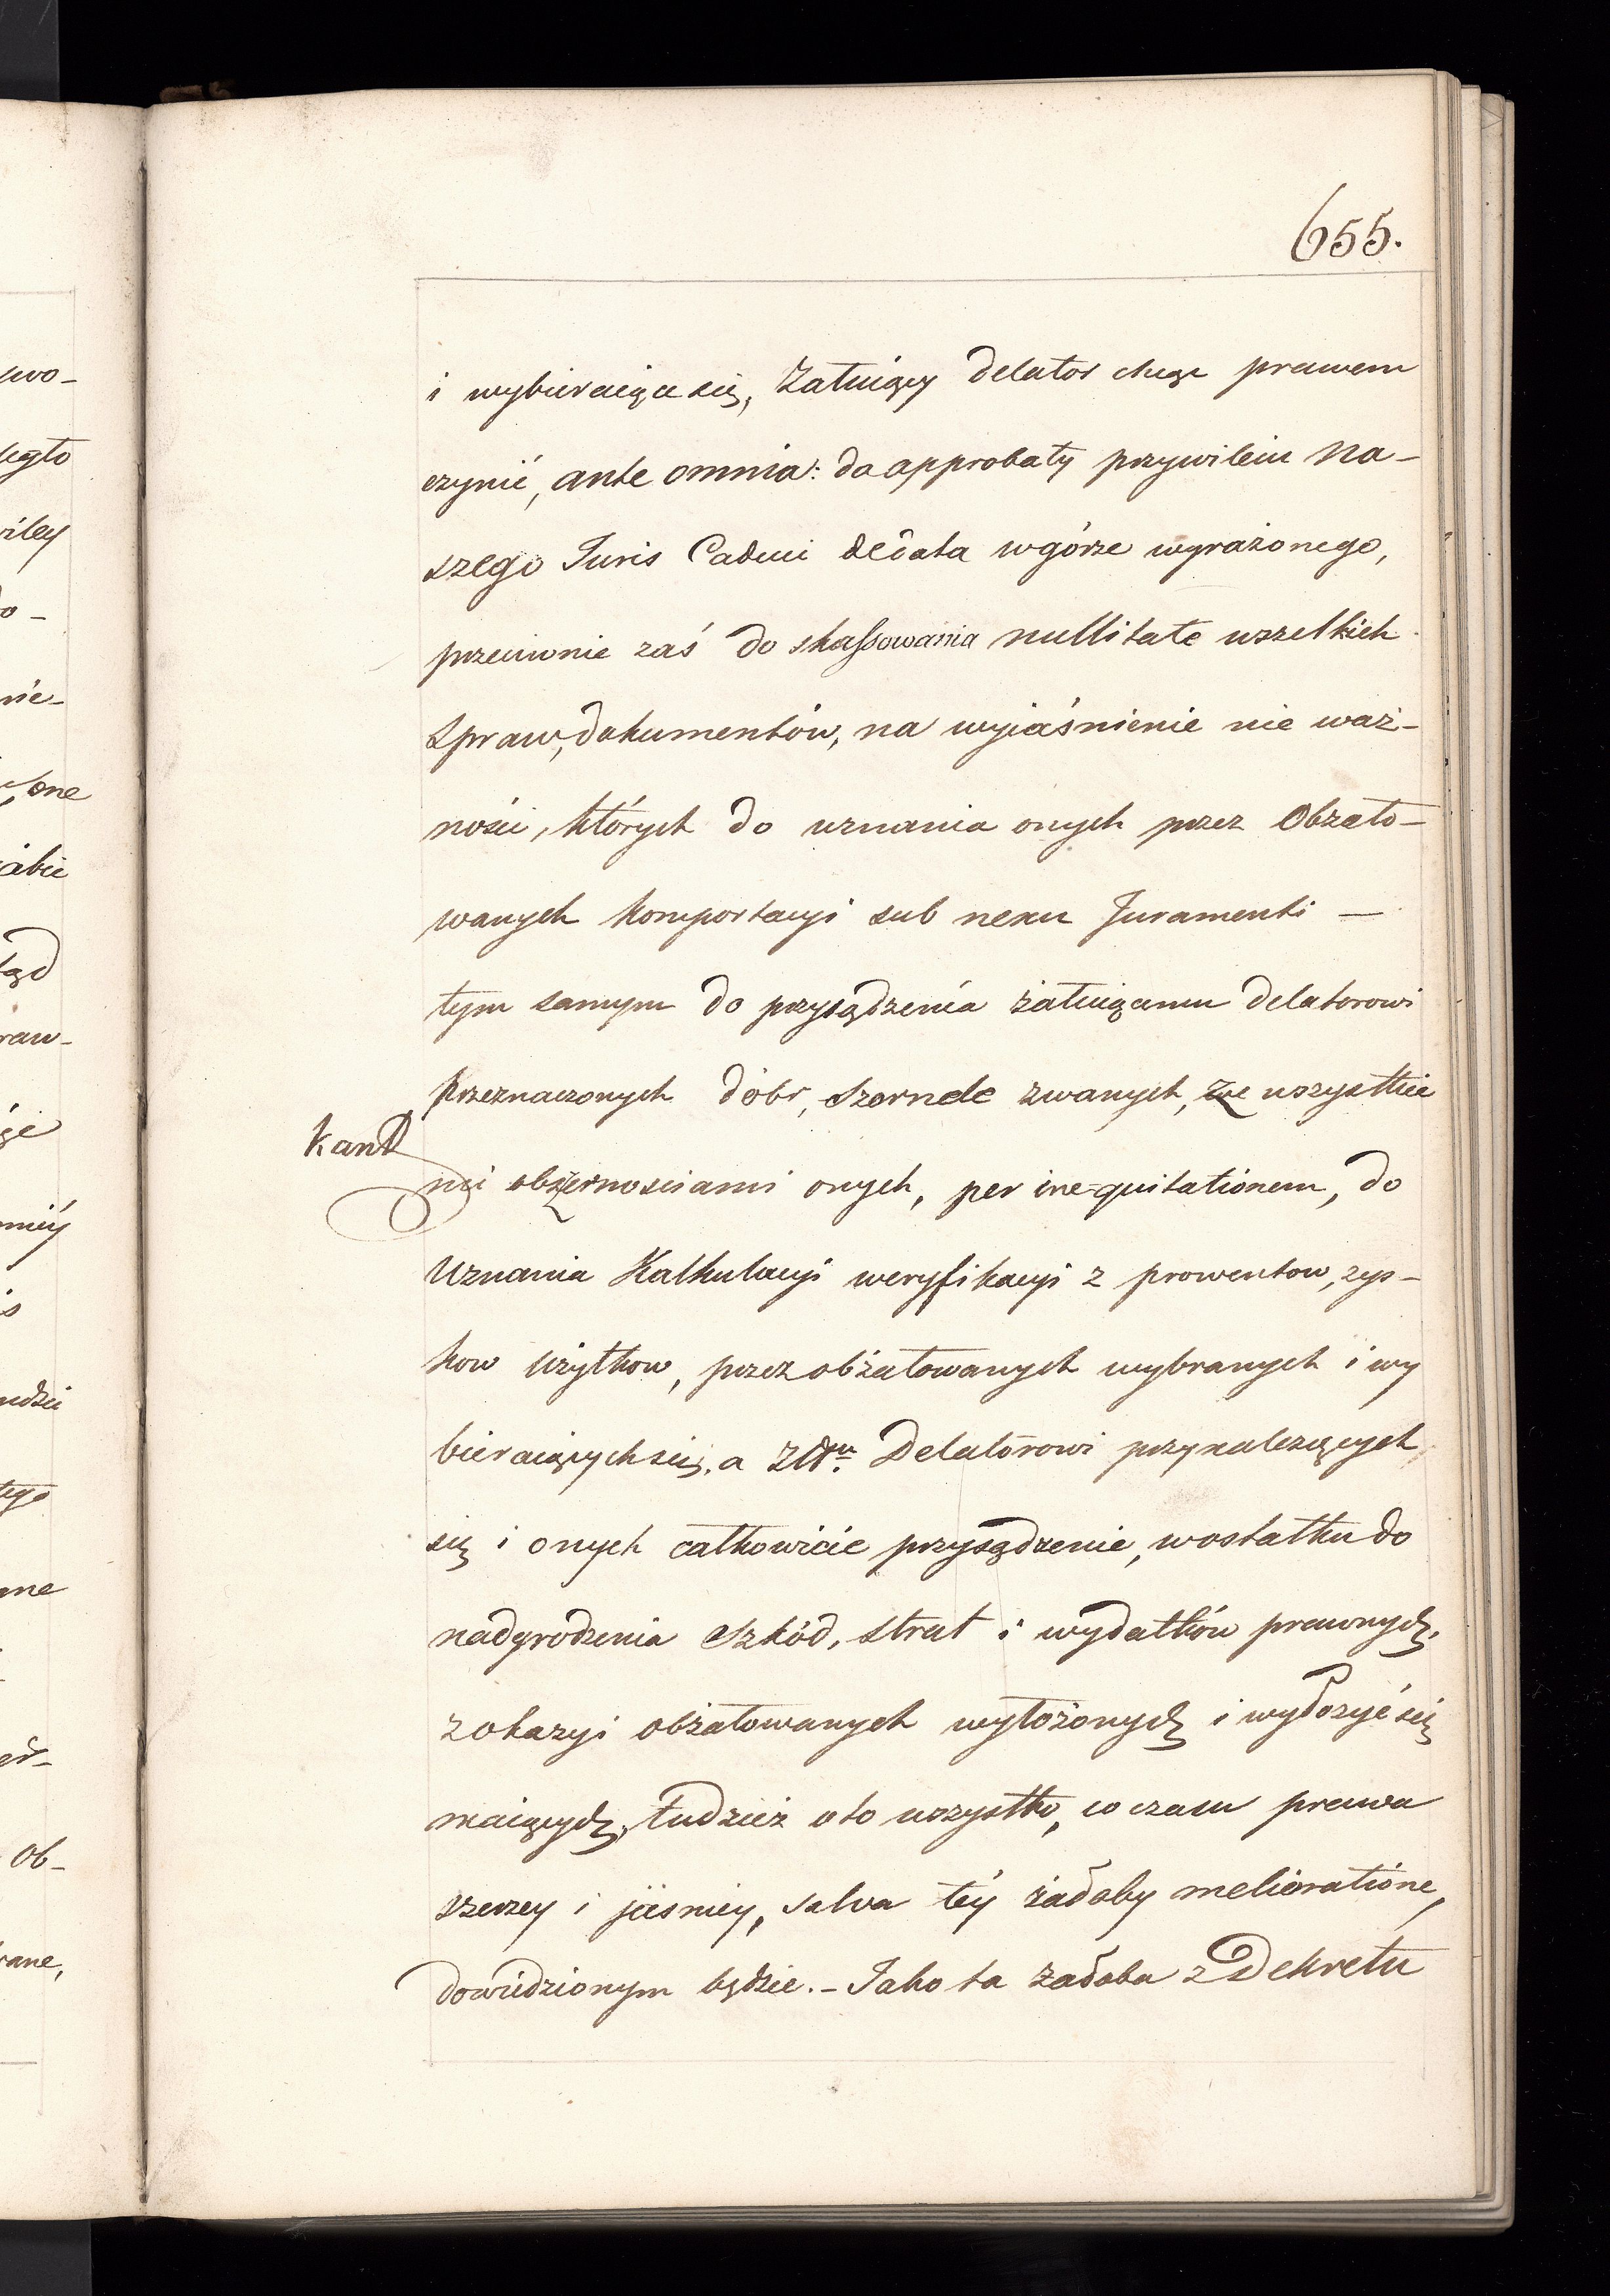 655.
i wybieraiące się, Załuiący delator chcąc prawem
czynić, ante omnia: do approbaty przywileiu Na-
szego Juris Caduci de data wgórze wyrażonego,
przeciwnie zaś do skassowania nullitate wszelkich
Spraw, dokumentów, na wyiaśnienie nie waż-
ności, których do uznania onych przez Obżało-
wanych komportacyi sub nexu Juramenti —
tym samym do przysądzenia żałuiącemu delatorowi
przeznaczonych dóbr, Szornele zwanych, ze wszystkie
Kant
mi obżernosciami onych, per ine=quitationem, do
Uznania Kalkulacyi weryfikacyi z prowentow, zys-
kow użytkow, przez obżałowanych wybranych i wy
bieraiących się, a Delatorowi przynależących
się i onych całkowicie przysądzenie, wostatku do
nadgrodzenia szkód, strat i wydatków prawnych,
zokazyi obżałowanych wyłożonych i wyłożyć się
maiących, tudzież oto wszystko, co czasu prawa
szerzey i jaśniey, salva téy żałoby melioratióne,
dowiedzionym będzie. - Jako ta żałoba z Dekretu
wo-
iley
do-
nie-
one
abie
raw-
mniéy
udzi
tego
ane
Ob-
rane,